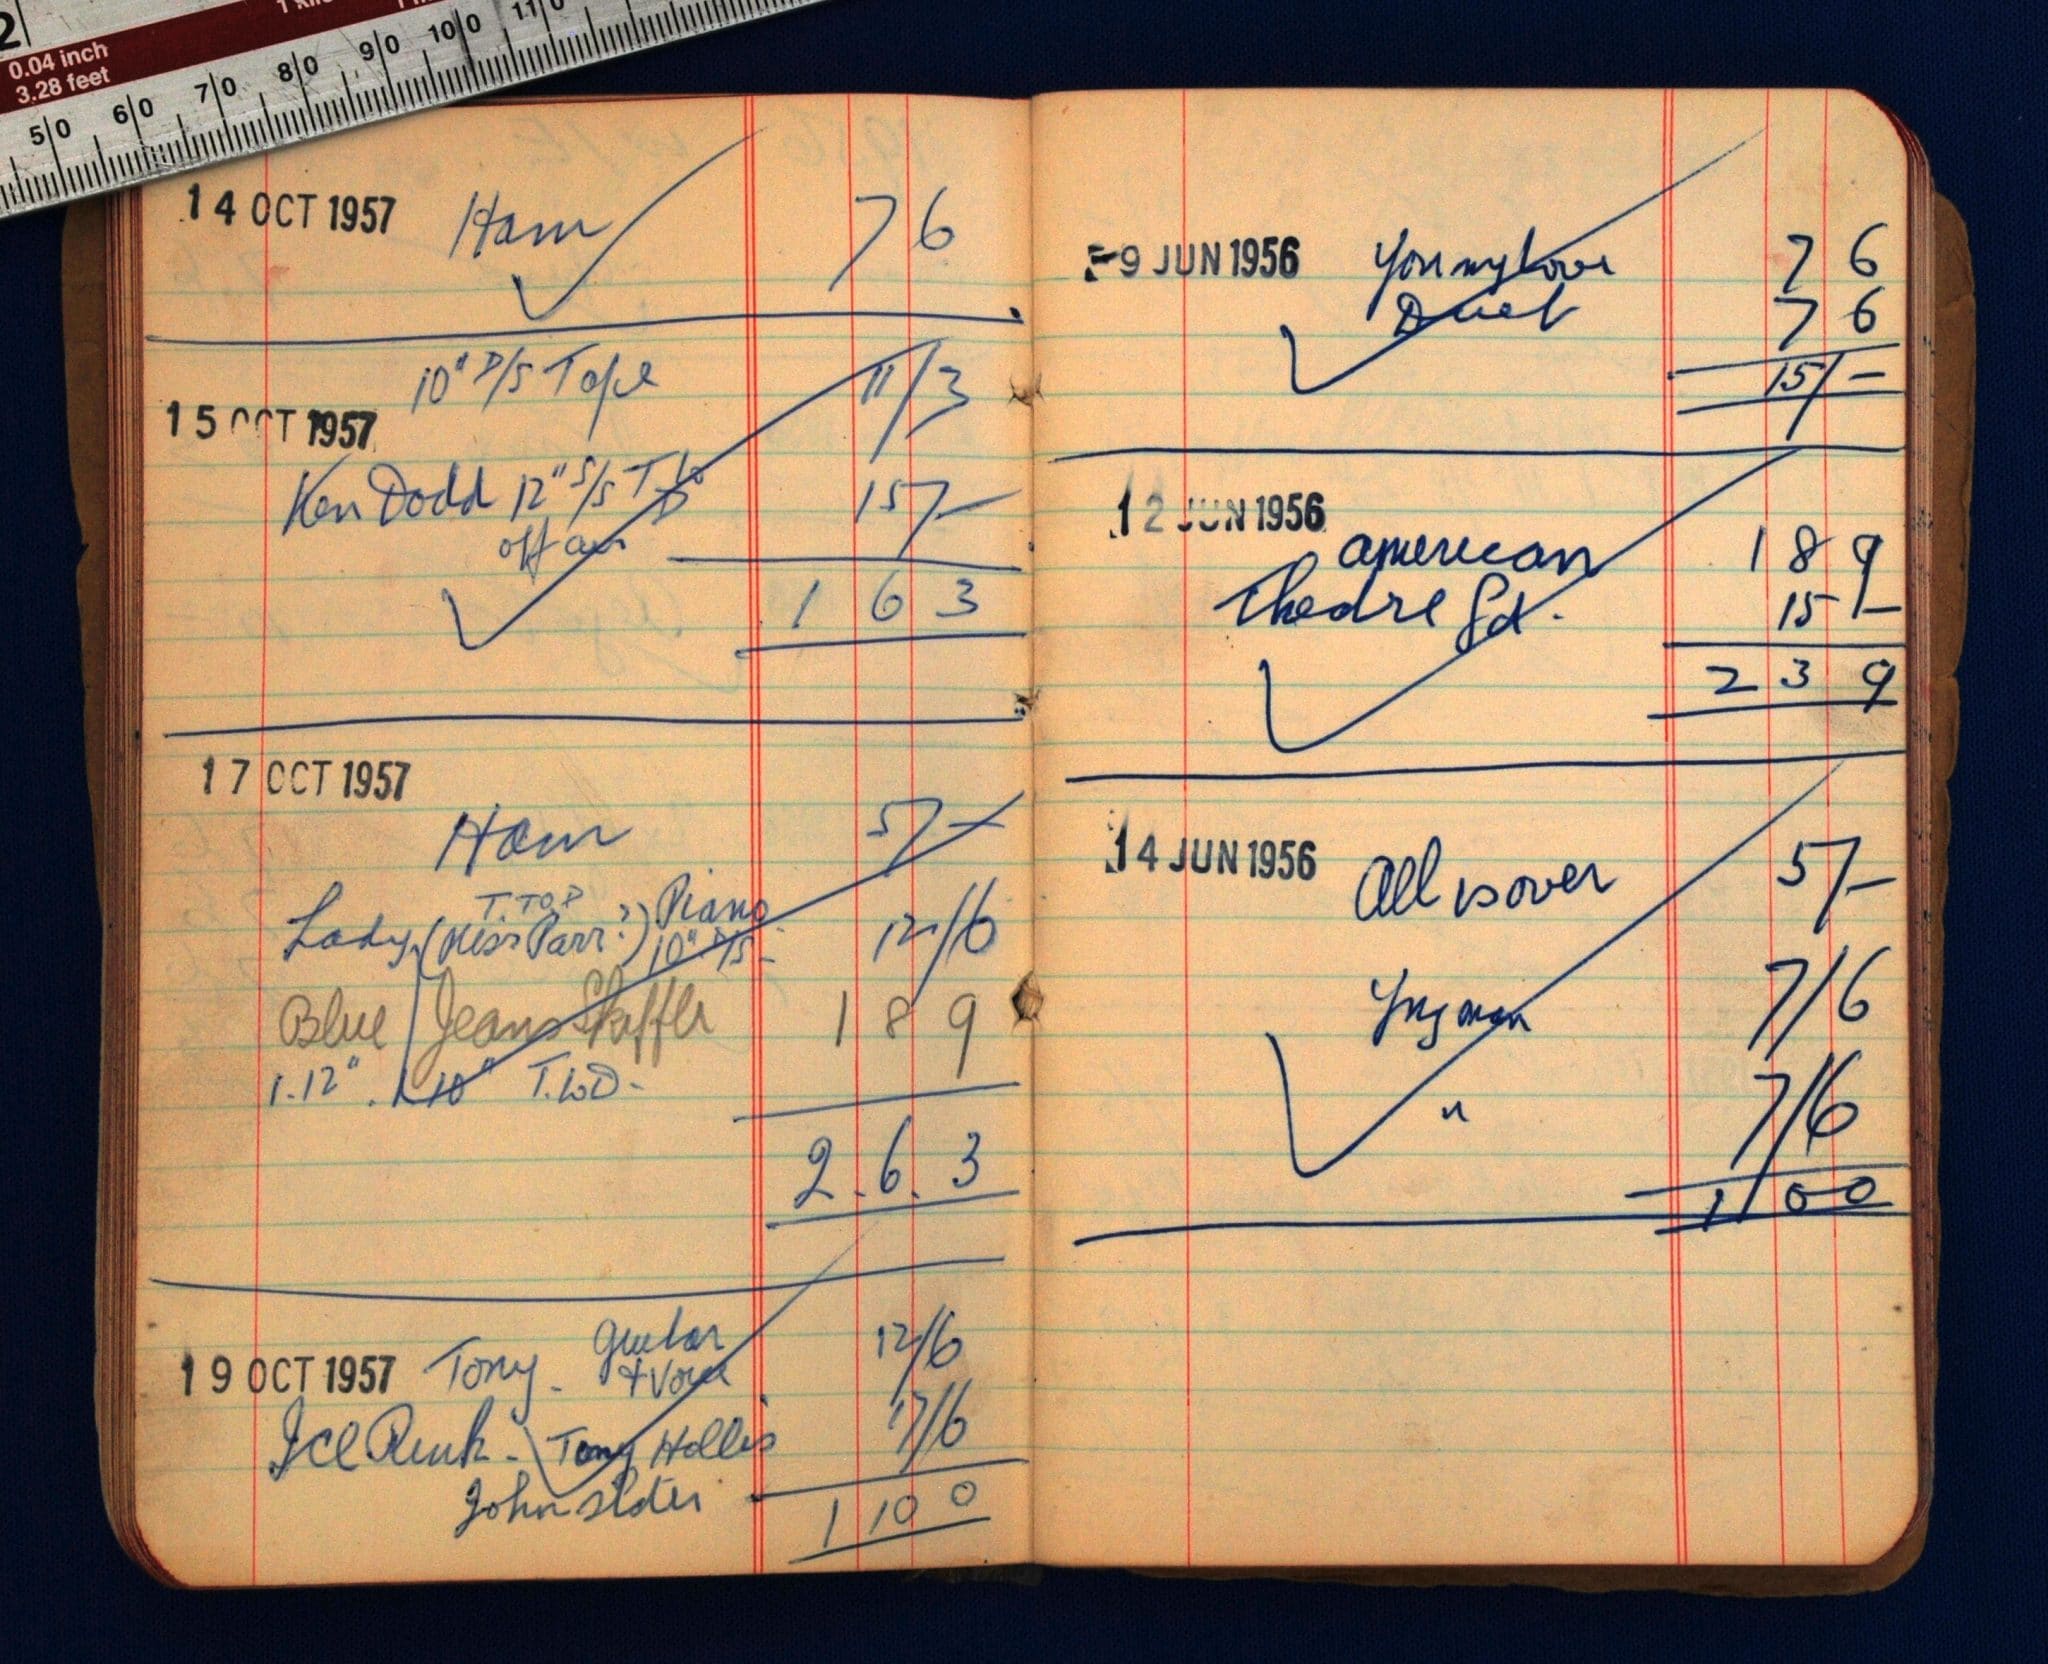 0.04 inch
3.28 feet
50 60 70 80 90 100 110
14 OCT 1957 Ham 7 6
10" D/S Tape 11/3
15 OCT 1957
Ken Dodd 12" S/S 15/-
off air
1 6 3
17 OCT 1957
Ham 5/-
T. TOP
Lady (Miss Parr?) Piano 12/6
10" D/S -
Blue Jeans Skiffle 1 8 9
1.12" . 1 10" T.W.D -
2 . 6 . 3
Guitar
19 OCT 1957 Tony - + Voice 12/6
Ice Rink - Tony Hollis 17/6
John
1 10 0
9 JUN 1956 You my Love 7 6
Duet 7 6
15/-
12 JUN 1956
American 1 8 9
Theatre 15/-
2 3 9
14 JUN 1956 All is over 5/-
Yng man 7/6
" 7/6
1 0 0